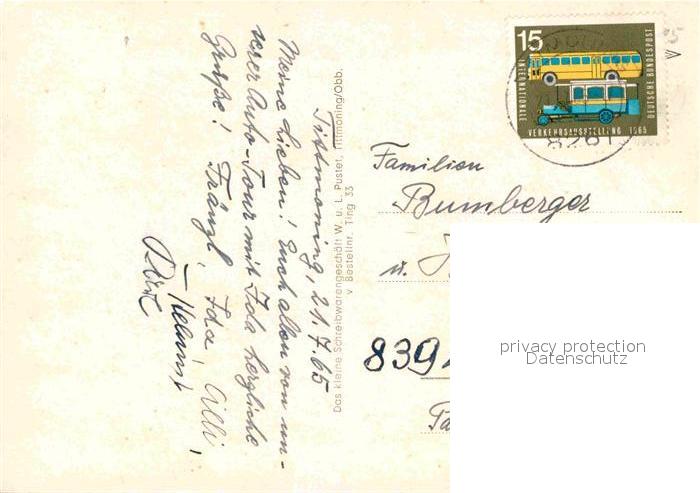 Tittmoning, 21.7.65
Meine Lieben! Euch allen von un-
serer Auto-Tour mit Ida herzliche
Grüße! Fränzl, Ida, Cilli,
Helmut
Das kleine Schreibwarengeschäft W. u. L. Pustet, Tittmoning/Obb.
v Bestellnr. Ting 33
15
INTERNATIONALE
VERKEHRSAUSSTELLUNG 1965
DEUTSCHE BUNDESPOST
8261
Familien
Bumberger
u.
839
privacy protection
Datenschutz